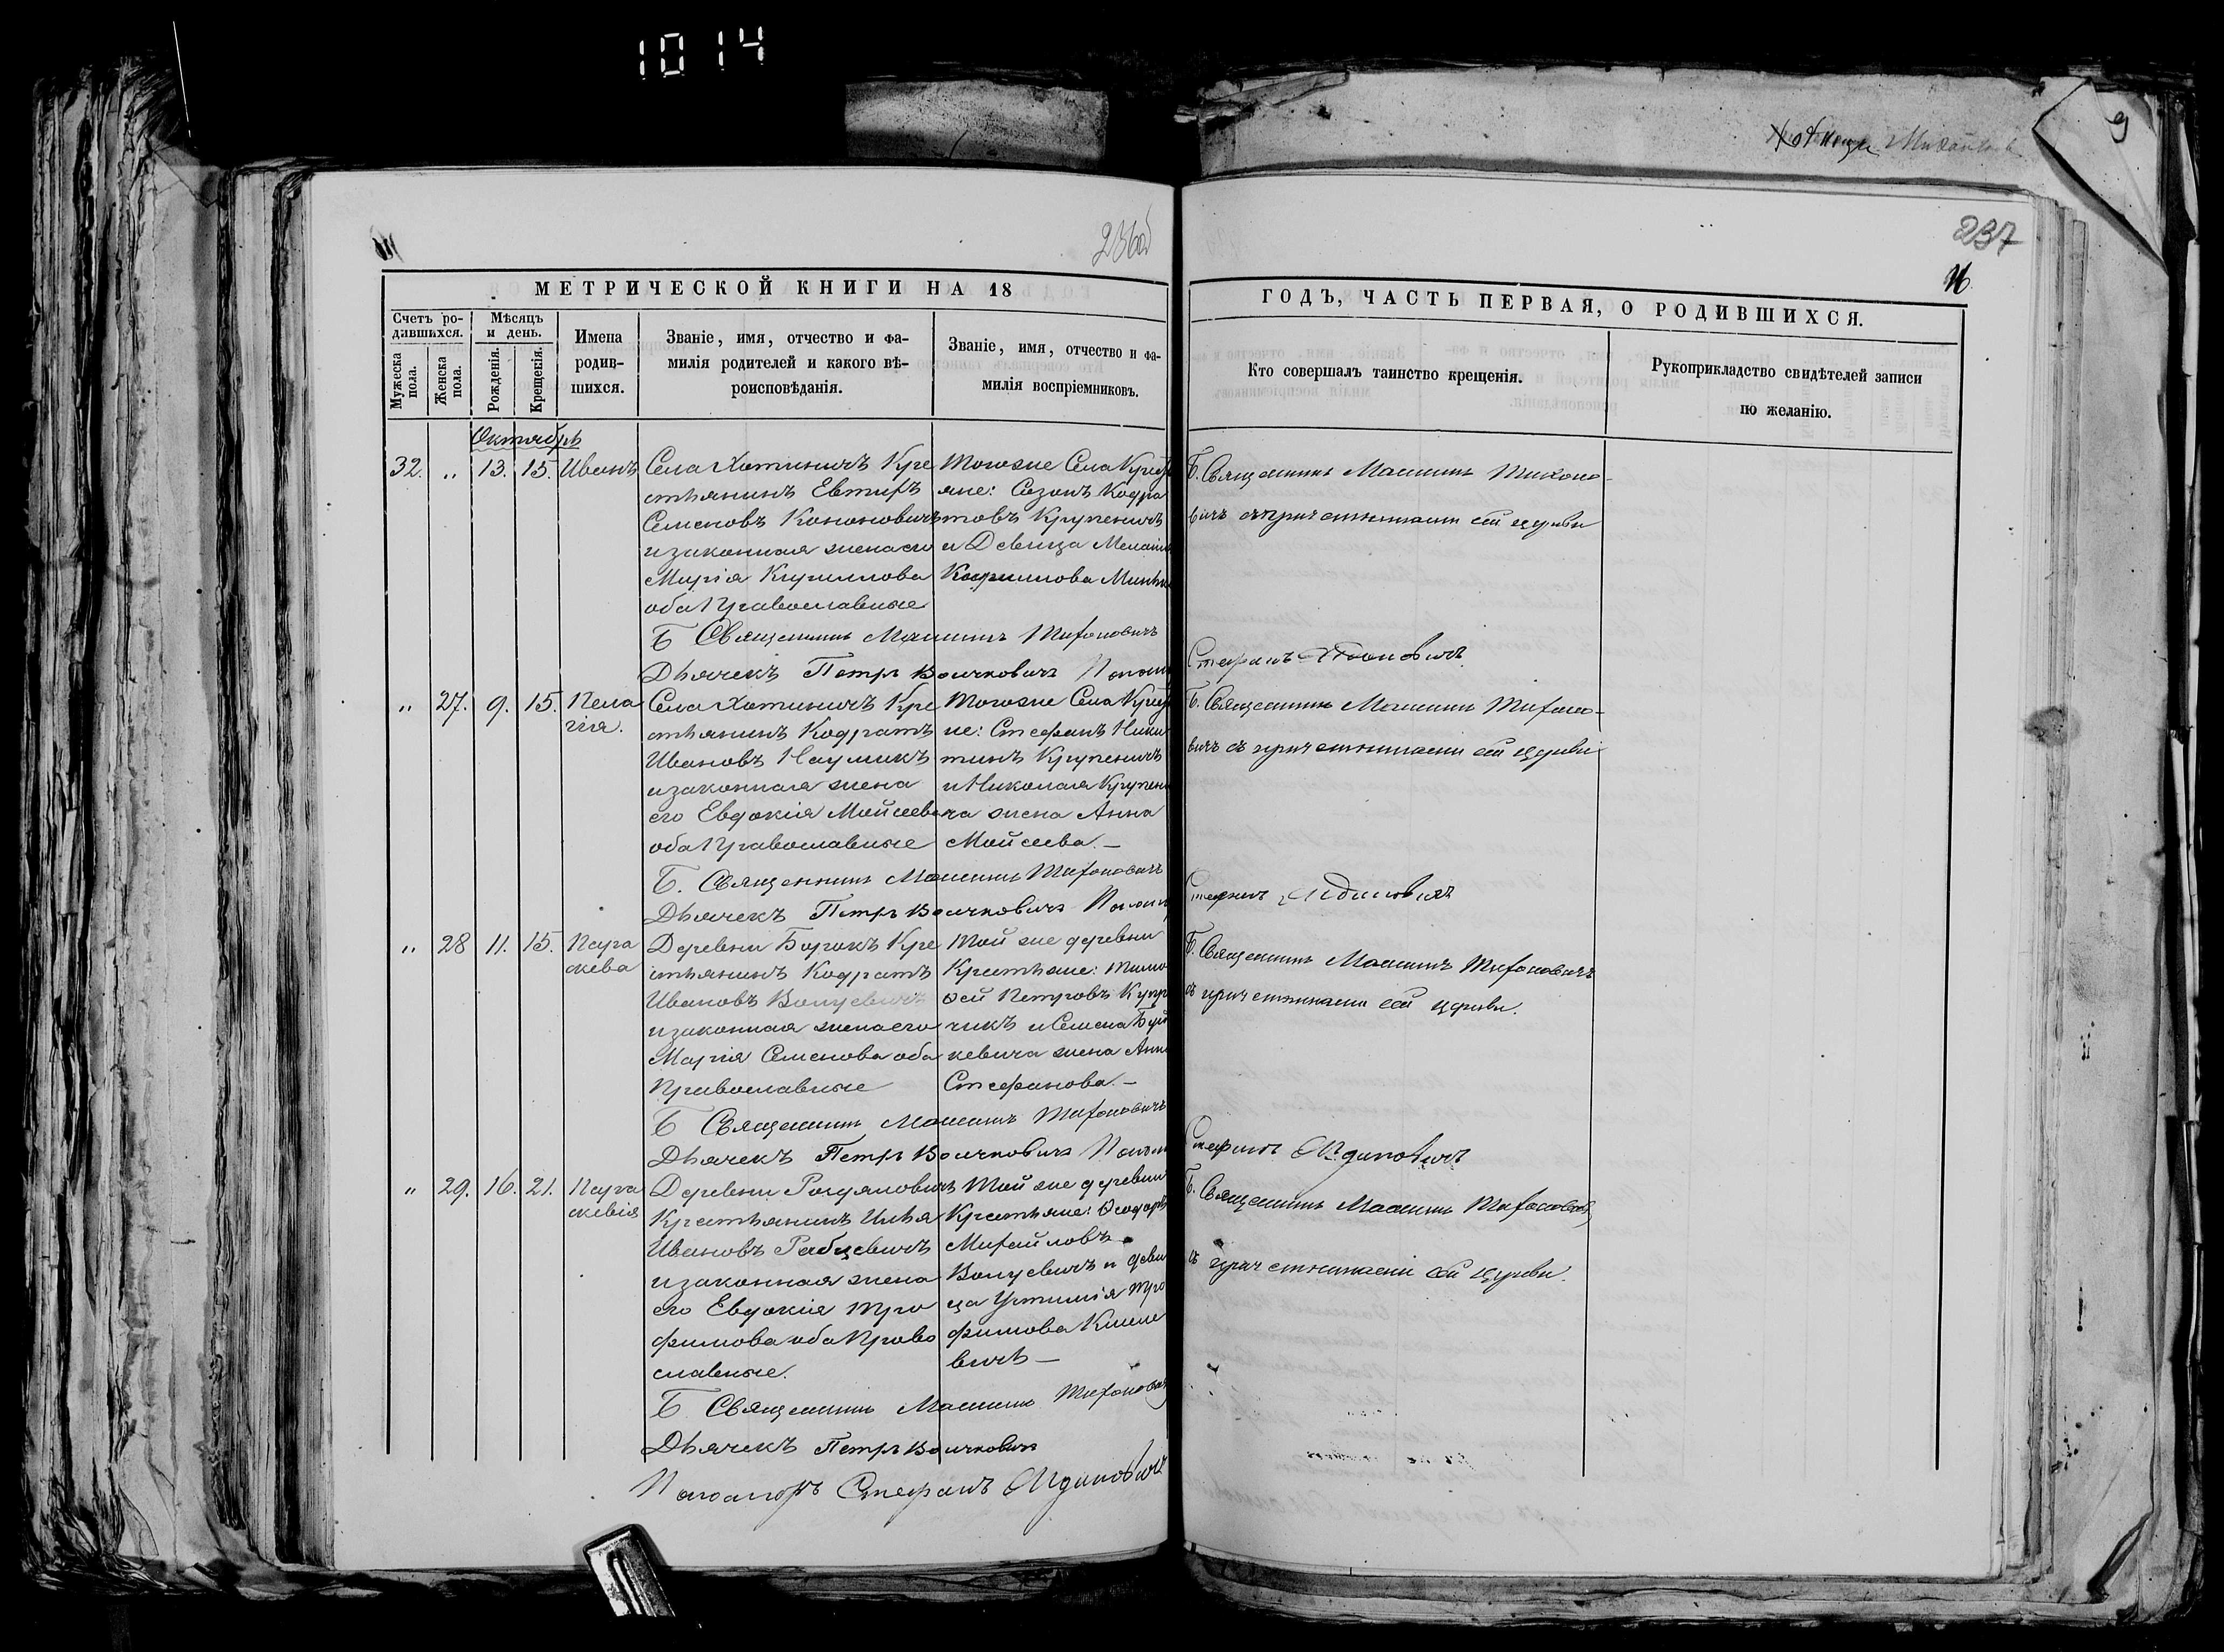 1014
9
236об
237
МЕТРИЧЕСКОЙ КНИГИ НА 18
ГОДЪ, ЧАСТЬ ПЕРВАЯ, О РОДИВШИХСЯ.
Счетъ родившихся.
Мужеска пола.
Женска пола.
Мѣсяцъ и день.
Рожденія.
Крещенія.
Имена родившихся.
Званіе, имя, отчество и фамилія родителей и какого вѣроисповѣданія.
Званіе, имя, отчество и фамилія воспріемниковъ.
Кто совершалъ таинство крещенія.
Рукоприкладство свидѣтелей записи по желанію.
Октябрь
32. „ 13. 15. Иванъ
Села Хотиничъ Кре
стьянинъ Евтифъ
Семеновъ Кононовичъ
и законная жена его
Марія Кириллова
оба Православные
Тогоже Села Крестья
яне: Созонъ Кодра
товъ Крупеничъ
и Девица Меланія
Кириллова
Б. Священникъ Тихоно-
вичъ съ причетниками сей церкви
Б Священникъ Тихоновичъ
Дьячекъ Петръ Воичковичъ
Стефанъ
„ 27. 9. 15. Пела
гія.
Села Хотиничъ Кре
стьянинъ Кодратъ
Ивановъ Наумикъ
и законная жена
его Евдокія Мойсеева
оба Православные
Тогоже Села Крестья
не: Стефанъ Ники
тинъ Крупеничъ
и Николая Крупени
ча жена Анна
Мойсеева.—
Б. Священникъ Тихоно-
вичъ съ причетниками сей церкви
Б. Священникъ Тихоновичъ
Дьячекъ Петръ Воичковичъ
Стефанъ
„ 28 11. 15. Пара
скева
Деревни Борокъ Кре
стьянинъ Кодратъ
Ивановъ Волуевичъ
и законная жена его
Марія Семенова оба
Православные
Той же деревни
Крестьяне: Тимо
ѳей Петровъ Купр
чикъ и Семена Буй
кевича жена Анна
Стефанова.—
Б. Священникъ Тихоновичъ
съ причетниками сей церкви.
Б Священникъ Тихоновичъ
Дьячекъ Петръ Воичковичъ
Стефанъ
„ 29. 16. 21. Пара
скевія
Деревни Раздяловичъ
Крестьянинъ Илья
Ивановъ Рабцевичъ
и законная жена
его Евдокія Тро
фимова оба Право
славные.
Той же деревни
Крестьяне: Ѳеодоръ
Михайловъ
Волуевичъ и деви
ца Устинія Тро
фимова Климе
вичъ—
Б. Священникъ Тихоновичъ
съ причетниками сей церкви.
Б Священникъ Тихоновичъ
Дьячекъ Петръ Воичковичъ
Пономарь Стефанъ